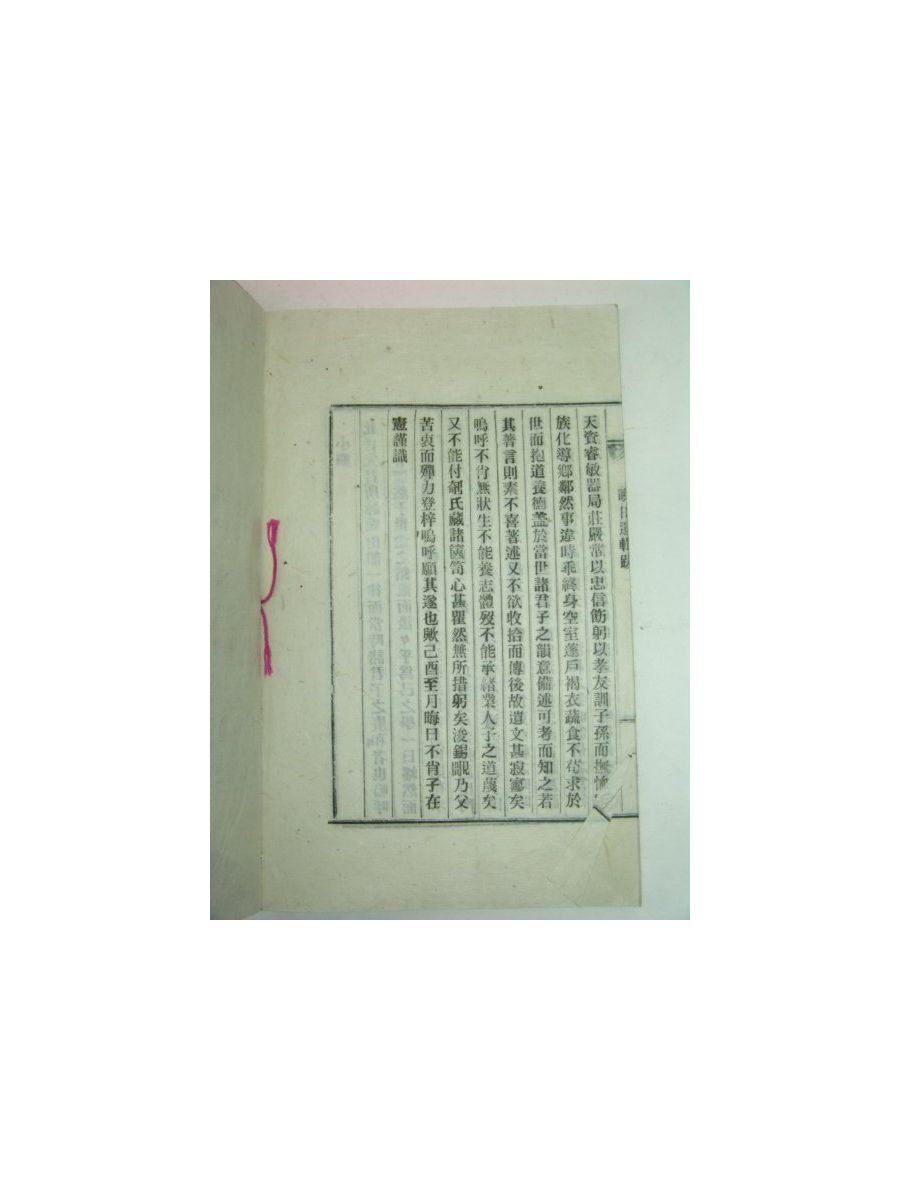 天資睿敏器局莊嚴常以忠信飭躬以孝友訓子孫而撫恤
族化導鄉鄰然事違時乖終身空室蓬戶褐衣蔬食不苟求於
世而抱道養德蓋於當世諸君子之韻意備述可考而知之若
其著言則素不喜著述又不欲收拾而傳後故遺文甚寂寥矣
嗚呼不肖無狀生不能養志體歿不能承緒業人子之道蔑矣
又不能付剞氏藏諸篋笥心甚瞿然無所措躬矣浚錫覵乃父
苦衷而殫力登梓嗚呼願其遂也歟己酉至月晦日不肖子在
憲謹識